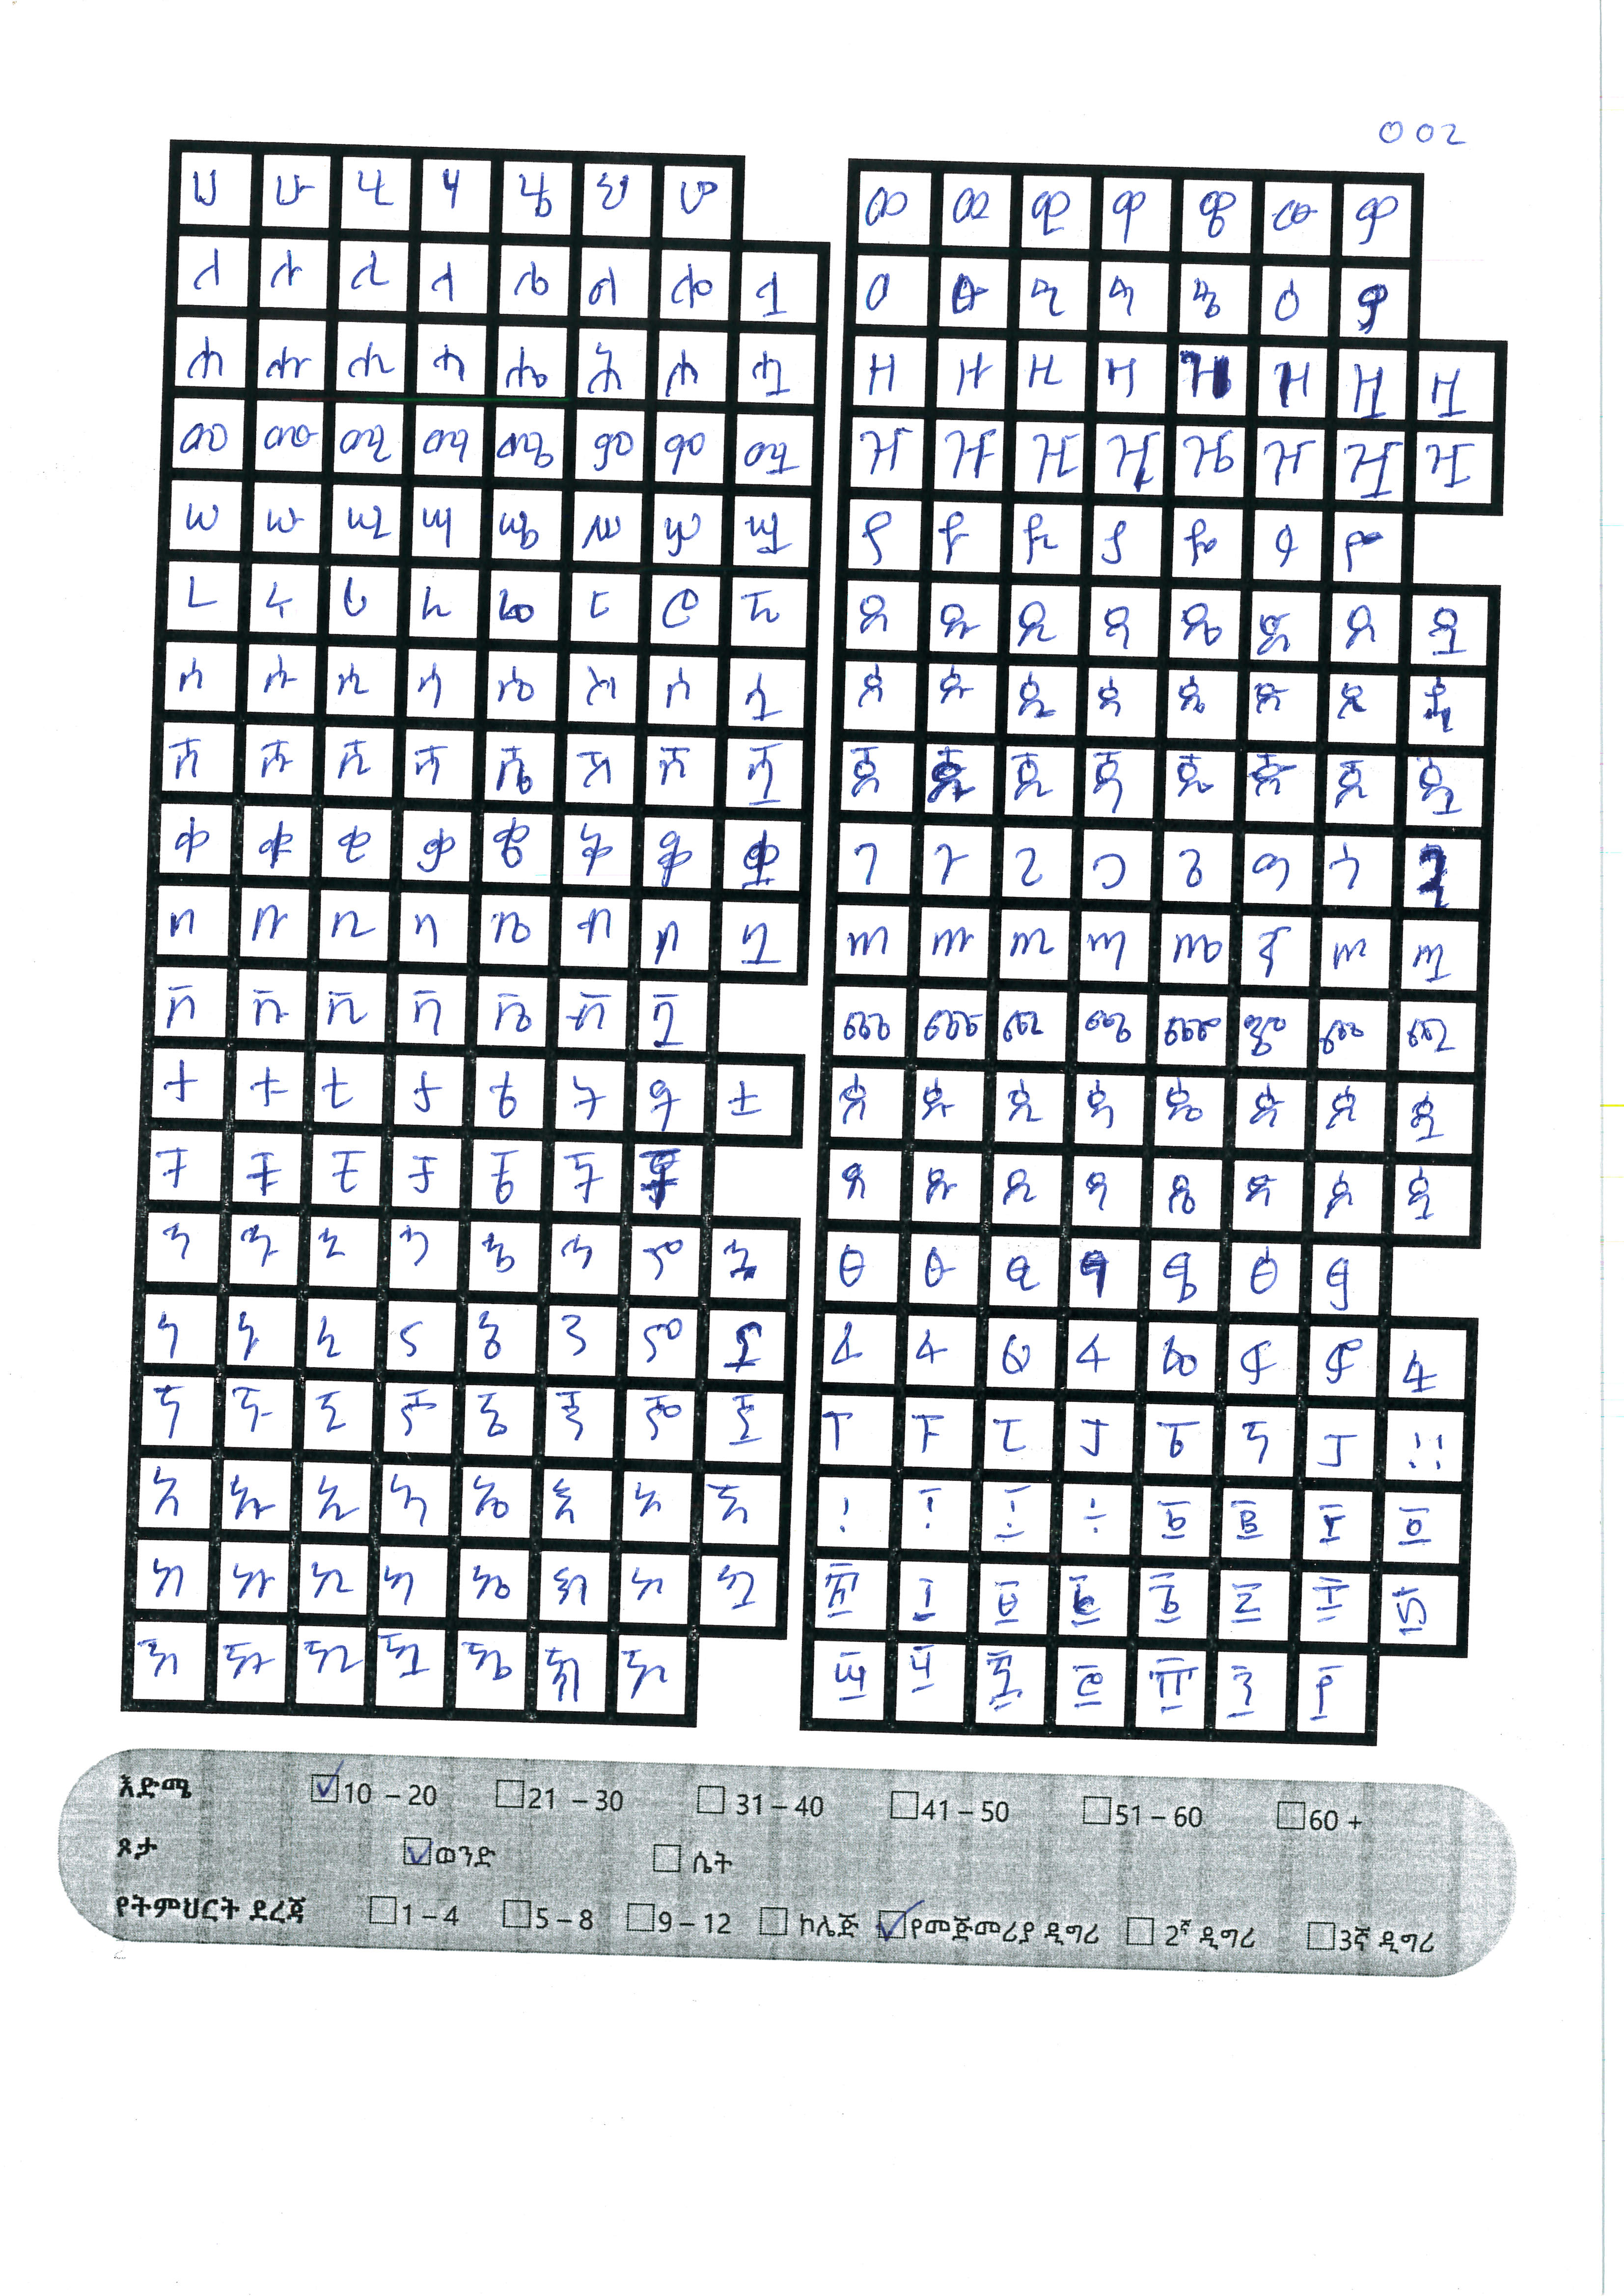 002
ሀ ሁ ሂ ሃ ሄ ህ ሆ
ለ ሉ ሊ ላ ሌ ል ሎ ሏ
ሐ ሑ ሒ ሓ ሔ ሕ ሖ ሗ
መ ሙ ሚ ማ ሜ ም ሞ ሟ
ሠ ሡ ሢ ሣ ሤ ሥ ሦ ሧ
ረ ሩ ሪ ራ ሬ ር ሮ ሯ
ሰ ሱ ሲ ሳ ሴ ስ ሶ ሷ
ሸ ሹ ሺ ሻ ሼ ሽ ሾ ሿ
ቀ ቁ ቂ ቃ ቄ ቅ ቆ ቋ
በ ቡ ቢ ባ ቤ ብ ቦ ቧ
ቨ ቩ ቪ ቫ ቬ ቭ ቯ
ተ ቱ ቲ ታ ቴ ት ቶ ቷ
ቸ ቹ ቺ ቻ ቼ ች ቾ
ኀ ኁ ኂ ኃ ኄ ኅ ኆ ኋ
ነ ኑ ኒ ና ኔ ን ኖ ኗ
ኘ ኙ ኚ ኛ ኜ ኝ ኞ ኟ
አ ኡ ኢ ኣ ኤ እ ኦ ኧ
ከ ኩ ኪ ካ ኬ ክ ኮ ኳ
ኸ ኹ ኺ ኻ ኼ ኽ ኾ
ወ ዉ ዊ ዋ ዌ ው ዎ
ዐ ዑ ዒ ዓ ዔ ዕ ዖ
ዘ ዙ ዚ ዛ ዜ ዝ ዞ ዟ
ዠ ዡ ዢ ዣ ዤ ዥ ዦ ዧ
የ ዩ ዪ ያ ዬ ይ ዮ
ደ ዱ ዲ ዳ ዴ ድ ዶ ዷ
ጀ ጁ ጂ ጃ ጄ ጅ ጆ ጇ
ገ ጉ ጊ ጋ ጌ ግ ጎ ጓ
ጠ ጡ ጢ ጣ ጤ ጥ ጦ ጧ
ጨ ጩ ጪ ጫ ጬ ጭ ጮ ጯ
ጰ ጱ ጲ ጳ ጴ ጵ ጶ ጷ
ጸ ጹ ጺ ጻ ጼ ጽ ጾ ጿ
ፀ ፁ ፂ ፃ ፄ ፅ ፆ
ፈ ፉ ፊ ፋ ፌ ፍ ፎ ፏ
ፐ ፑ ፒ ፓ ፔ ፕ ፖ ።
እድሜ 10 – 20 21 – 30 31 – 40 41 – 50 51 – 60 60 +
ጾታ ወንድ ሴት
የትምህርት ደረጃ 1 – 4 5 – 8 9 – 12 ኮሌጅ የመጀመሪያ ዲግሪ 2ኛ ዲግሪ 3ኛ ዲግሪ